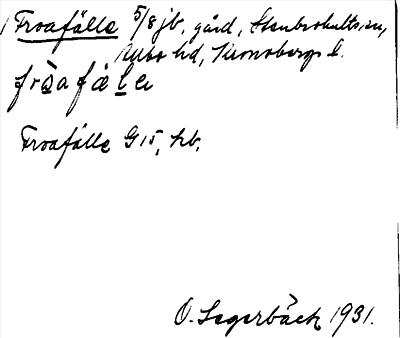 Froafälle 5/8 jb, gård, Stenbrohults sn,
Allbo hd, Kronobergs l.
fròafäle
Froafälle G 15, hb.
O. Segerbäck 1931.